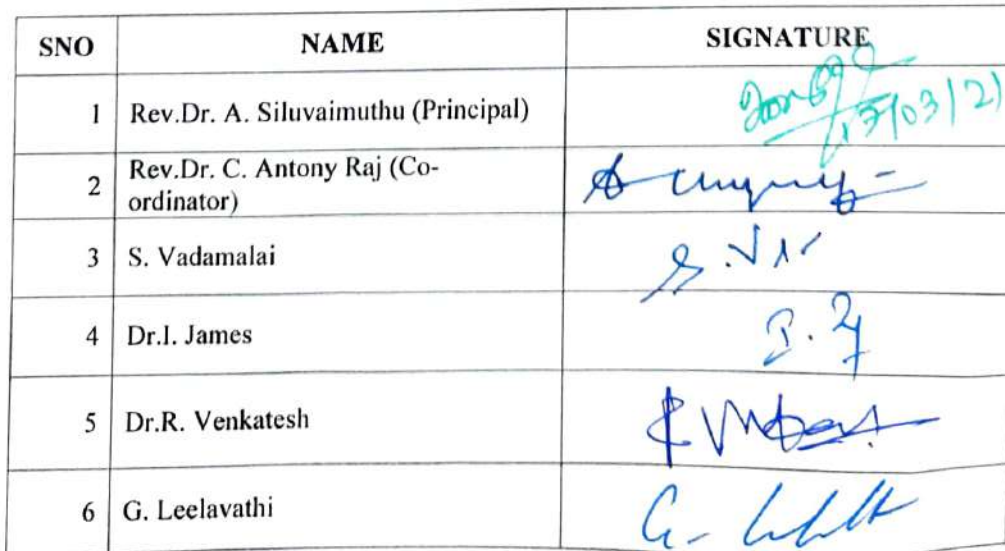 SNO NAME SIGNATURE
1 Rev.Dr. A. Siluvaimuthu (Principal)
17/03/21
2 Rev.Dr. C. Antony Raj (Co-
ordinator)
3 S. Vadamalai
4 Dr.I. James
5 Dr.R. Venkatesh
6 G. Leelavathi